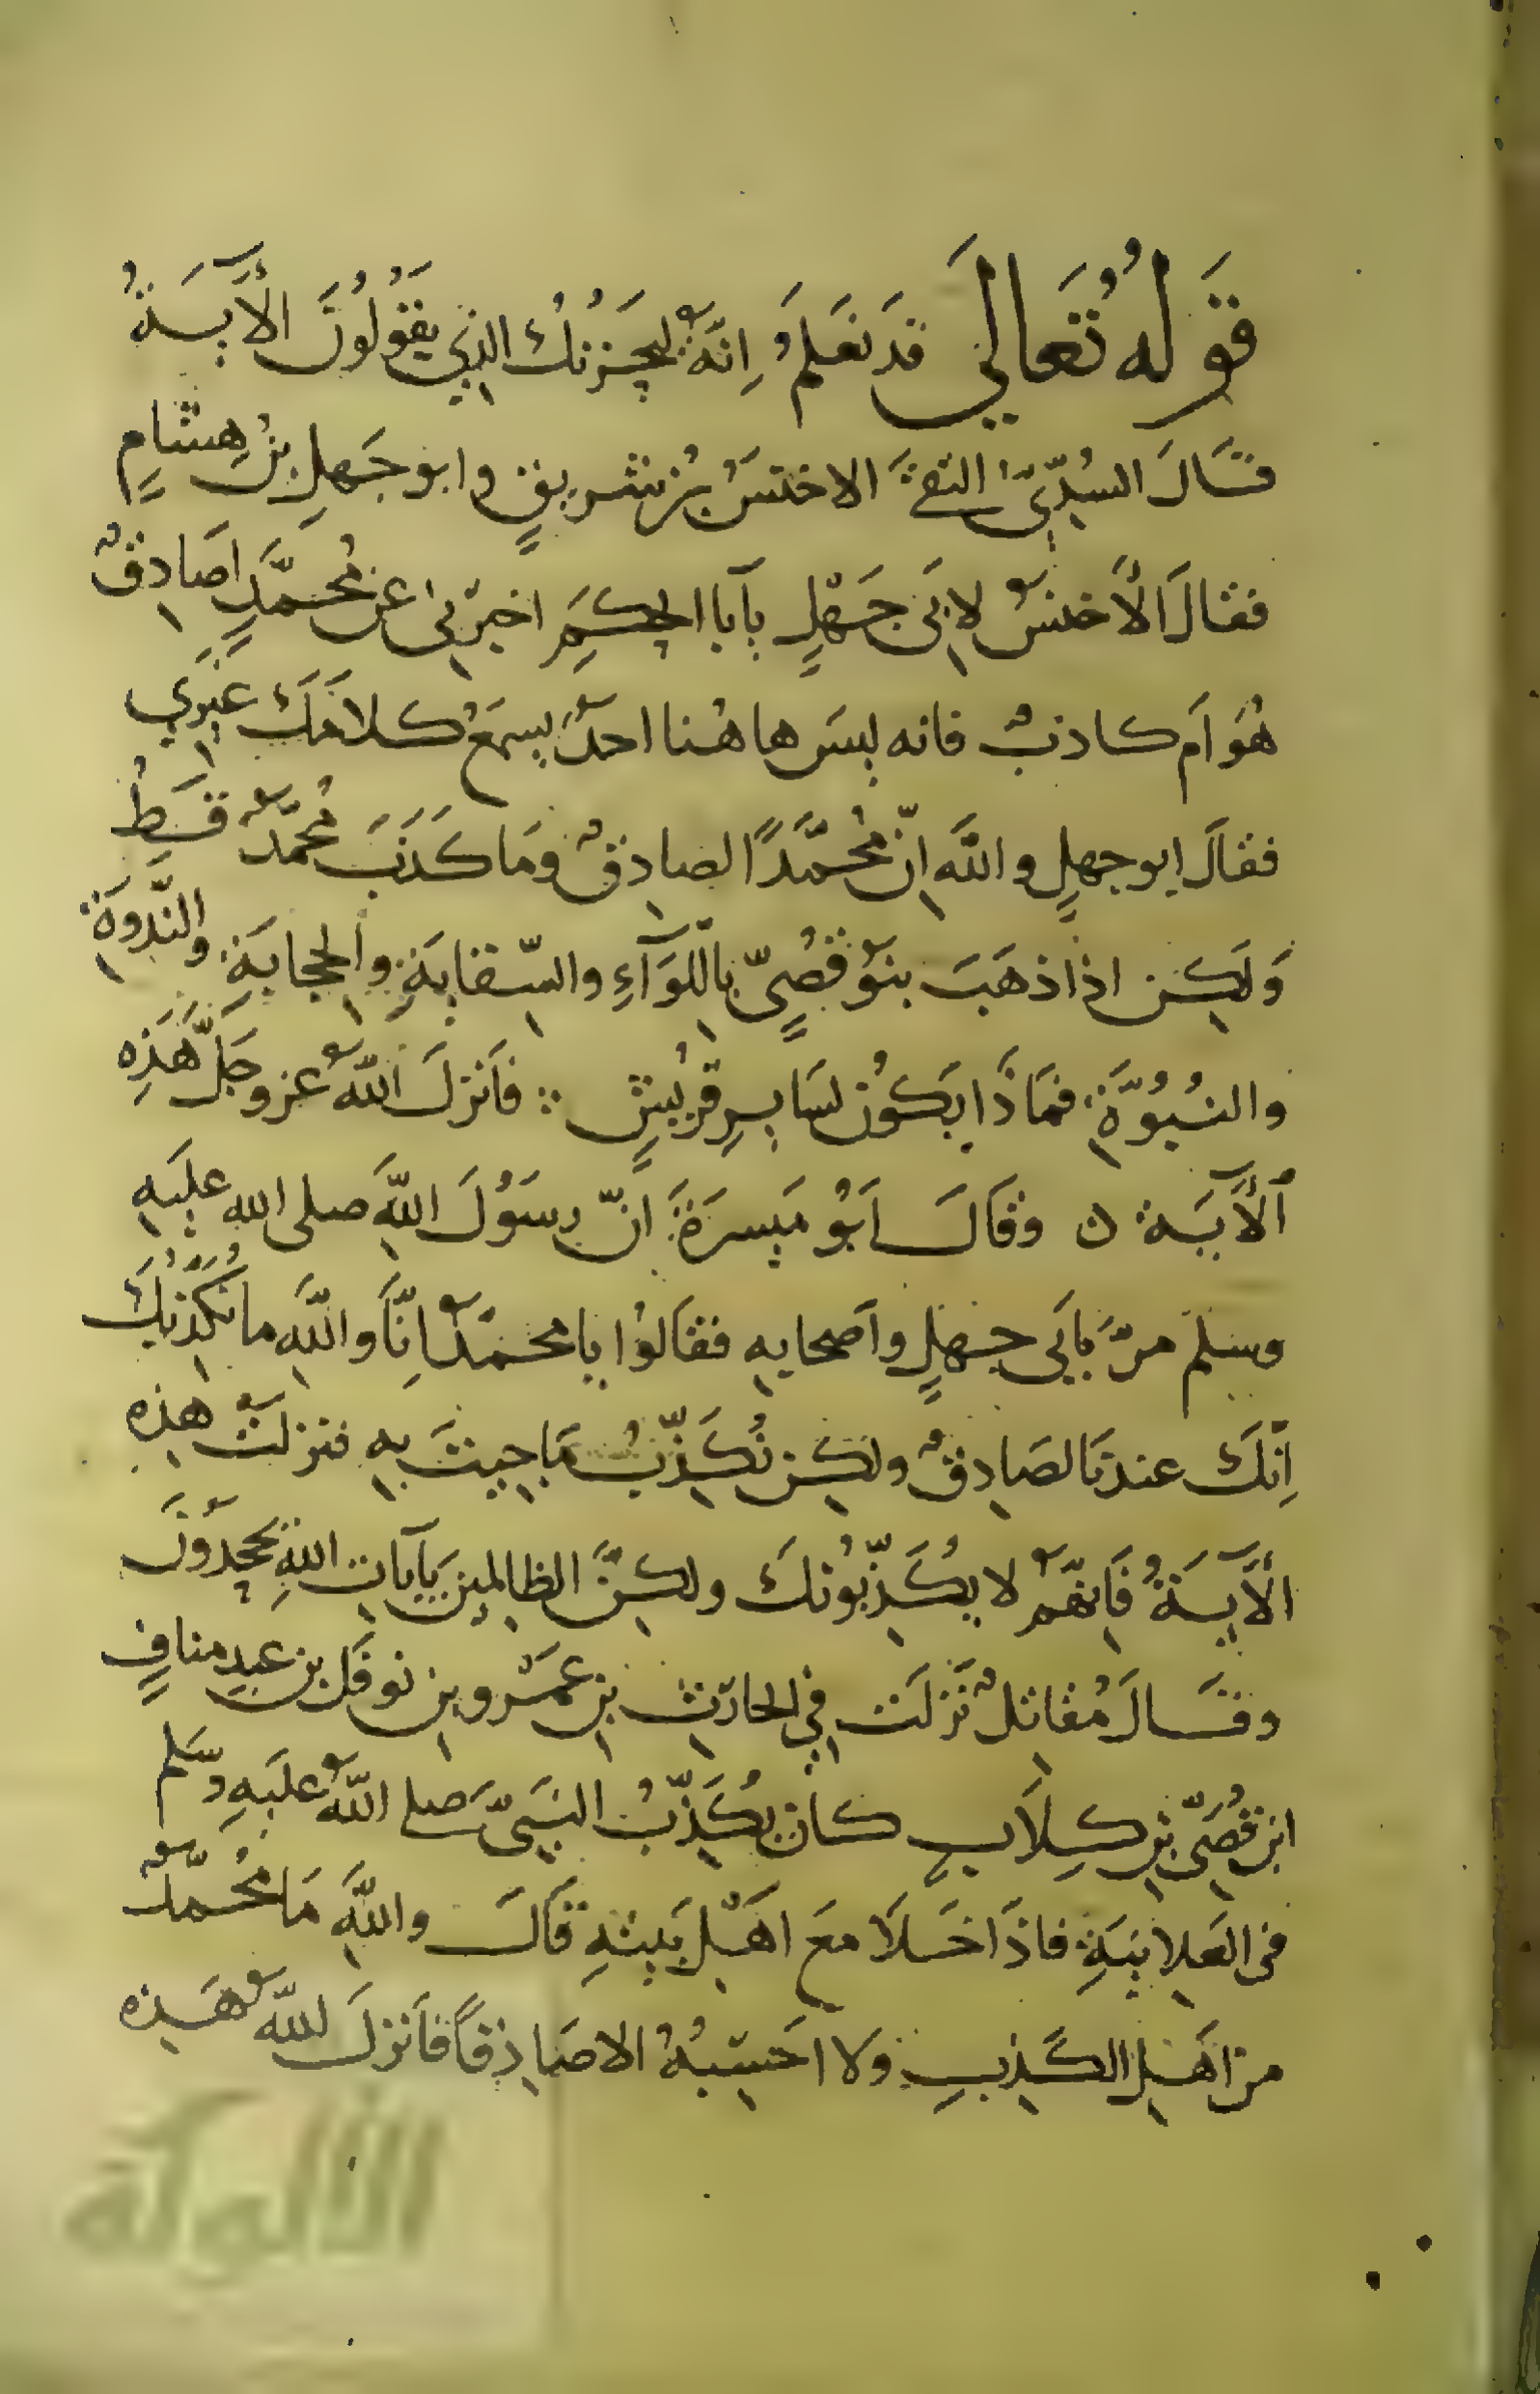 قَولُهُ تَعَالَى قَد نَعلَمُ اِنَّهُ لَيَحزُنُكَ الذي يَقُولُونَ الآيَةُ
قَالَ السُدِّيّ التقىَ الاخنسُ بنُ شَرِيقٍ وابو جَهلِ بنُ هِشَامٍ
فقالَ الأخنسُ لِابى جَهْلٍ يآبا الحِكَمِ اخبِرْنى عن مُحمَّدٍ اصَادِقٌ
هُوَ اَم كاذبٌ فانه ليسَ هاهُنا احدٌ يسمَعُ كلامَكَ غَيرِي
فقالَ ابو جهلٍ واللَّهِ اِنّ مُحمَّدًا لصادِقٌ ومَا كَذَبَ مُحمدٌ قَطُّ
وَلَكِن اذا ذهَبَ بنو قُصِىٍّ باللِّوآءِ والسِّقايَةِ والحِجَابَةِ والنَّدوَةِ
والنُبُوَّةِ فمَاذَا يَكُون لسَايرِ قُرَيشٍ فأنزلَ اللهُ عز وجَلَّ هَذِه
الآيَةَ ن وقَالَ اَبُو مَيسرَةَ انّ رسَوُلَ اللهِ صلى الله علَيهِ
وسلم مرَّ بأبى جهلٍ وأصحابِهِ فقالوُا يا محمدُ اِنَّا واللَّهِ ما نُكَذِّبُكَ
اِنّكَ عندنَا لصَادِقٌ ولكِن نُكَذِّبُ مَا جِيتَ بِهِ فنزلتْ هذِه
الآيَةُ فَاِنَّهُمْ لا يُكَذِّبُونَكَ ولكِنَّ الظالمِينَ بآيَاتِ اللهِ يَجْحِدُونَ
وقَالَ مُقاتلٌ نَزلَت فِي الحارِثِ بنِ عَمْرو بنِ نوفَل بن عبدِ منافٍ
ابن قُصَىِّ بنِ كِلاَبٍ كانَ يُكَذِّبُ النَبىَّ صَلى اللهُ علَيهِ وسَلم
فى العَلانِيَةِ فاذَا خَلَا معَ اهْلِ بَيتِهِ قَالَ واللهِ مَا مُحمّدٌ
من اَهلِ الكَذِبِ ولا احسِبُهُ الا صَادِقاً فاَنزلَ اللهُ هَذِه
الألوكة